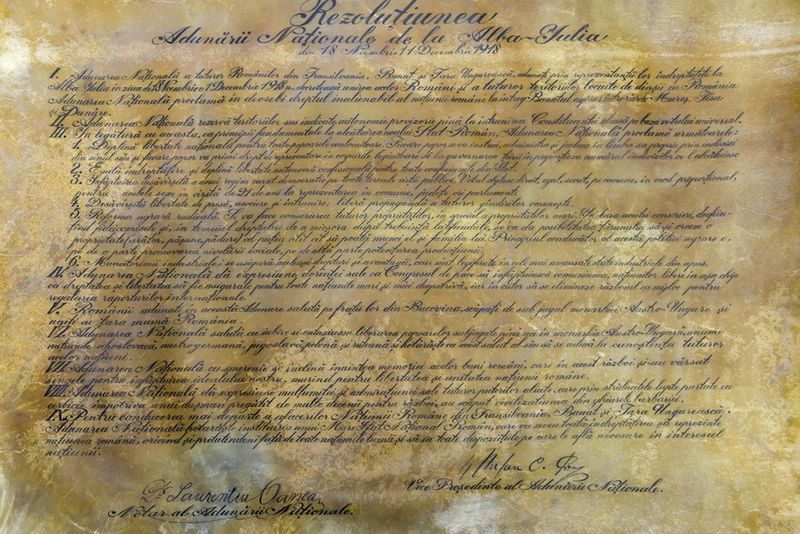 Rezoluțiunea
Adunării Naționale de la Alba-Iulia
din 18 Noembrie/1 Decembrie 1918
I. Adunarea Națională a tuturor Românilor din Transilvania, Banat și Țara Ungurească, adunați prin reprezentanții lor îndreptățiți la
Alba-Iulia în ziua de 18 Noembrie/1 Decembrie 1918, decretează unirea acelor Români și a tuturor teritoriilor locuite de dânșii cu România.
Adunarea Națională proclamă îndeosebi dreptul inalienabil al națiunii române la întreg Banatul cuprins între râurile Mureș, Tisa
și Dunăre.
II. Adunarea Națională rezervă teritoriilor sus indicate autonomie provizorie până la întrunirea Constituantei alese pe baza votului universal.
III. În legătură cu aceasta, ca principii fundamentale la alcătuirea noului Stat Român, Adunarea Națională proclamă următoarele:
1. Deplină libertate națională pentru toate popoarele conlocuitoare. Fiecare popor se va instrui, administra și judeca în limba sa proprie prin indivizi
din sânul său și fiecare popor va primi drept de reprezentare în corpurile legiuitoare și la guvernarea țării în proporție cu numărul indivizilor ce-l alcătuiesc.
2. Egală îndreptățire și deplină libertate autonomă confesională pentru toate confesiunile din Stat.
3. Înfăptuirea desăvârșită a unui regim curat democratic pe toate tărâmurile vieții publice. Votul obștesc, direct, egal, secret, pe comune, în mod proporțional,
pentru ambele sexe, în vârstă de 21 de ani la reprezentarea în comune, județe ori parlament.
4. Desăvârșită libertate de presă, asociere și întrunire, liberă propagandă a tuturor gândurilor omenești.
5. Reforma agrară radicală. Se va face conscrierea tuturor proprietăților, în special a proprietăților mari. În baza acestei conscrieri, desfiin-
țând fidei-comisele și, în temeiul dreptului de a micșora după trebuință latifundiile, se va da posibilitatea țăranului să-și creeze o
proprietate (arător, pășune, pădure) cel puțin atât cât să poată munci el și familia lui. Principiul conducător al acestei politici agrare e,
pe de o parte promovarea nivelării sociale, pe de altă parte potențarea producțiunii.
6. Muncitorimei industriale i se asigură aceleași drepturi și avantagii, care sunt legiferate în cele mai avansate state industriale din apus.
IV. Adunarea Națională dă expresiune dorinței sale ca Congresul de pace să înfăptuiască comuniunea națiunilor libere în așa chip
ca dreptatea și libertatea să fie asigurate pentru toate națiunile mari și mici deopotrivă, iar în viitor să se elimineze războiul ca mijloc pentru
regularea raporturilor internaționale.
V. Românii adunați în această Adunare salută pe frații lor din Bucovina, scăpați de sub jugul monarhiei Austro-Ungare și
uniți cu țara mumă România.
VI. Adunarea Națională salută cu iubire și entuziasm liberarea popoarelor subjugate până aci în monarhia Austro-Ungară, anume
națiunile: cehoslovacă, austro-germană, jugoslavă, polonă și ruteană și hotărăște ca acest salut al său să se aducă la cunoștința tuturor
acelor națiuni.
VII. Adunarea Națională cu smerenie se închină înaintea memoriei acelor buni români, care în acest război și-au vărsat
sângele pentru înfăptuirea idealului nostru, murind pentru libertatea și unitatea națiunii române.
VIII. Adunarea Națională dă expresiune mulțumirei și admirațiunei sale tuturor puterilor aliate, care prin strălucitele lupte purtate cu
cerbicie împotriva unui dușman pregătit de multe decenii pentru război, au scăpat civilizațiunea din ghiarele barbariei.
IX. Pentru conducerea mai departe a afacerilor Națiunii Române din Transilvania, Banat și Țara Ungurească,
Adunarea Națională hotărăște instituirea unui Mare Sfat Național Român, care va avea toată îndreptățirea să reprezinte
națiunea română, oricând și pretutindeni față de toate națiunile lumii și să ia toate dispozițiile pe care le află necesare în interesul
națiunii.
Ștefan C. Pop
Dr. Laurentiu Oanea
Vice Președinte al Adunării Naționale.
Notar al Adunării Naționale.